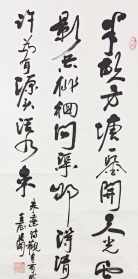 半畝方塘一鑒開天光雲
影共徘徊問渠那得清
許為有源頭活水來
朱熹詩觀書有感